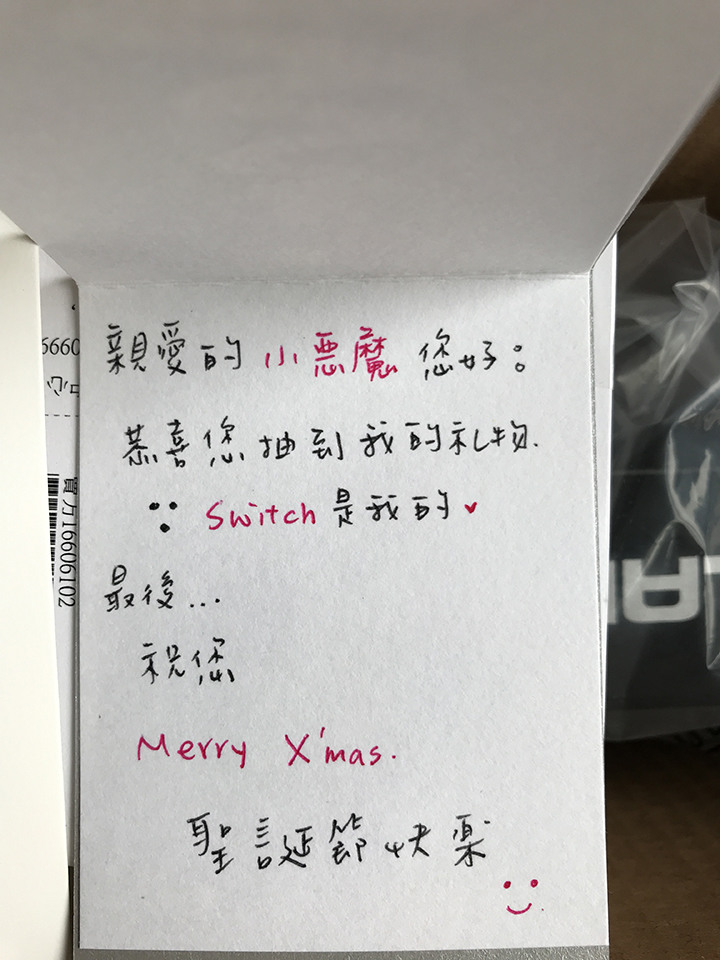 親愛的 小惡魔 您好：
恭喜您抽到我的礼物.
∵ Switch 是我的♥
最後...
祝您
Merry X'mas.
聖誕節快樂
6660
中心
買万16606102